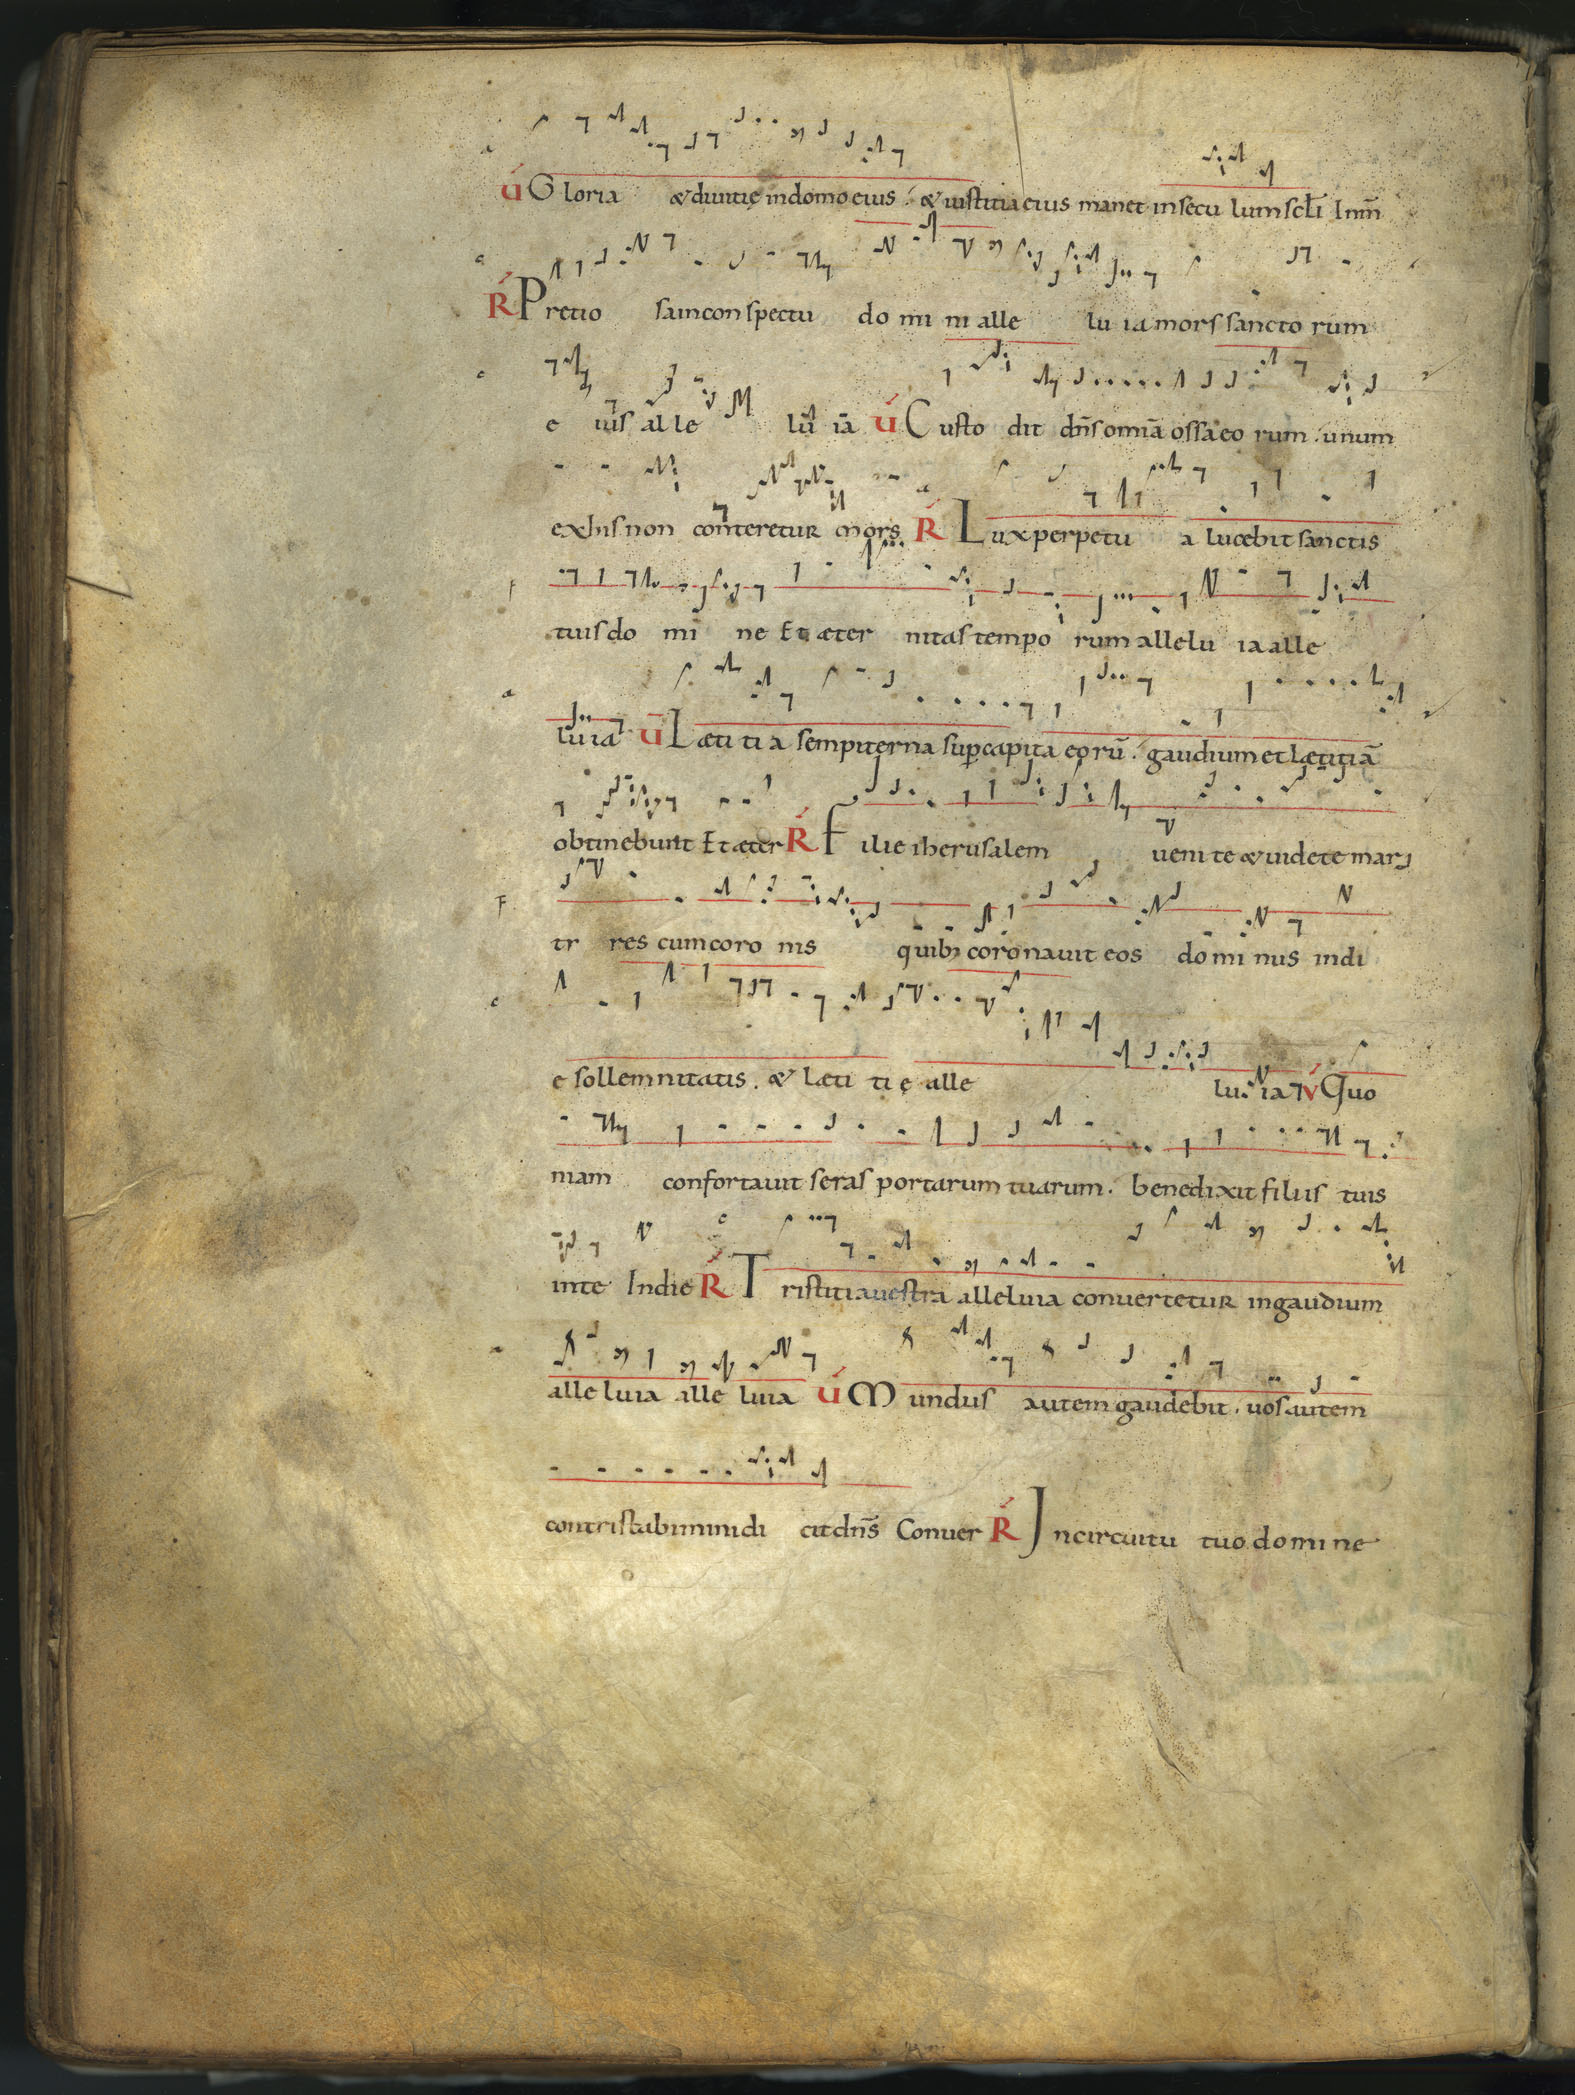 v́ Gloria & diuitię in domo eius . & iustitia eius manet in seculum sc̄li Inm̄
Ŕ Pretio sa in conspectu do mi ni alle lu ia mors sancto rum
e ius al le lu ia v́ Custo dit dn̄s om̄ia ossa eo rum . unum
ex his non conteretur mors Ŕ Lux perpetu a lucebit sanctis
tuis do mi ne Et æter nitas tempo rum allelu ia alle
luia v́ Læti ti a sempiterna sup capita eorū . gaudium et lætitiā
obtinebunt Et æter Ŕ Filie iherusalem uenite & uidete mar
tr res cum coro nis quib; coronauit eos do mi nus in di
e sollemnitatis . & læti ti ę alle lu ia v́ Quo
niam confortauit seras portarum tuarum . benedixit filiis tuis
in te In die Ŕ Tristitia uestra alleluia conuertetur in gaudium
alleluia alle luia v́ Mundus autem gaudebit . uos autem
contristabimini di cit dn̄s Conuer Ŕ In circuitu tuo domine